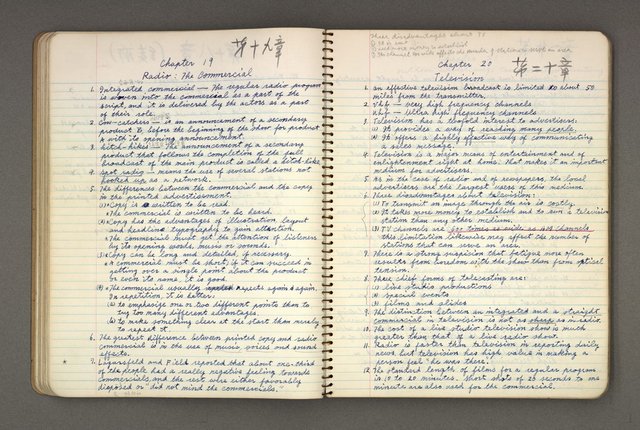 Chapter 19 第十九章
Radio: The Commercial
1. Integrated commercial — The regular radio program
is woven into the commercial as a part of the
script, and it is delivered by the actors as a part
of their role.
2. Cow-catchers — is an announcement of a secondary
product before the beginning of the show for product
with its opening announcement.
3. hitch-hikes — The announcement of a secondary
product that follows the completion of the full
broadcast of the main product is called a hitch-hike.
4. Spot radio — means the use of several stations not
hooked up as a network.
5. The differences between the commercial and the copy
in the printed advertisement.
(1) Copy is written to be read.
* The commercial is written to be heard.
(2) Copy has the advantages of illustration, layout
and headline typography to gain attention.
* The commercial must get the attention of listeners
by its opening words, music or sounds.
(3) Copy can be long and detailed, if necessary.
* A commercial must be short; if it can succeed in
getting over a single point about the product
or even its name, it is good.
(4) * The commercial usually repeats again & again.
In repetition, it is better:
(a) to emphasize one or two different points than to
try too many different advantages.
(b) to make something clear at the start than merely
to repeat it.
6. The greatest difference between printed copy and radio
commercial is in the use of music, voices and sound
effects.
7. Lazarsfeld and Field reported that about one-third
of the people had a really negative feeling towards
commercials, and the rest were either favorably
disposed or "did not mind the commercials."
Three disadvantages about TV
Chapter 20 第二十章
Television
1. an effective television broadcast is limited to about 50
miles from the transmitter.
2. vhf — very high frequency channels
uhf — ultra high frequency channels
3. Television has a twofold interest to advertisers:
(1) It provides a way of reaching many people.
(2) It offers a highly effective way of communicating
a sales message.
4. Television is a major means of entertainment and of
enlightenment right at home; that makes it an important
medium for advertisers.
5. As in the case of radio and of newspapers, the local
advertisers are the largest users of this medium.
6. Three disadvantages about television:
(1) To transmit an image through the air is costly.
(2) It takes more money to establish and to run a television
station than any other medium.
(3) TV channels are 600 times as wide as AM channels
this limitation likewise may affect the number of
stations that can serve an area.
7. There is a strong suspicion that fatigue more often
results from boredom with the show than from optical
tension.
8. Three chief forms of telecasting are:
(1) live studio productions
(2) special events
(3) films and slides
9. The distinction between an integrated and a straight
commercial in television is not as sharp as in radio.
10. The cost of a live studio television show is much
greater than that of a live radio show.
11. Radio is faster than television in reporting daily
news, but television has high value in making a
person feel "he was there."
12. The standard length of films for a regular program
is 10 to 20 minutes. Short shots of 20 seconds to one
minute are also used for the commercial.